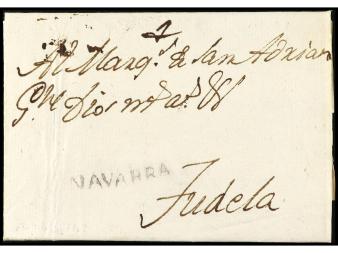 Al Marq.s de San Adrian
G.de Dios m.s a.s
NAVARRA
Tudela